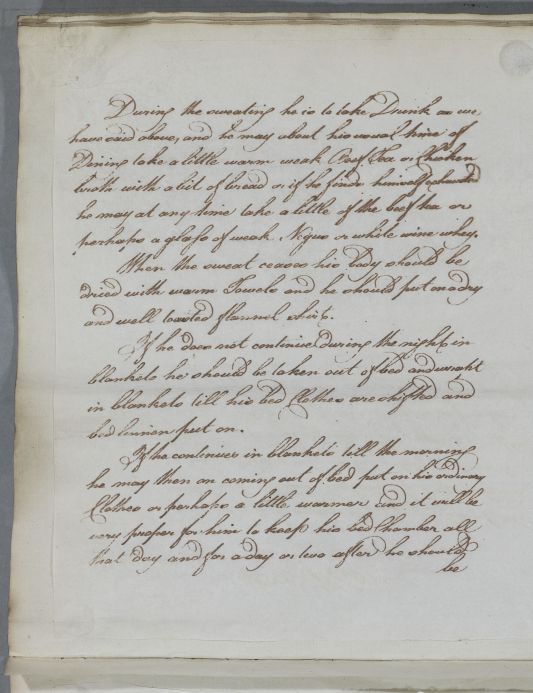 During the sweating he is to take Drink as we
have said above, and he may about his usual time of
Dining take a little warm weak Beef Tea or Chicken
broth with a bit of bread or if he finds himself exhausted
he may at any time take a little of the beef tea or
perhaps a glass of weak Negus or white wine whey.
When the sweat ceases his body should be
dried with warm Towels and he should put on a dry
and well toasted flannel shirt.
If he does not continue during the night in
blankets he should be taken out of bed and wrapt
in blankets till his bed Clothes are shifted and
bed linnen put on.
If he continues in blankets till the morning
he may then on coming out of bed put on his ordinary
Clothes or perhaps a little warmer and it will be
very proper for him to keep his bed Chamber all
that day and for a day or two after he should
be